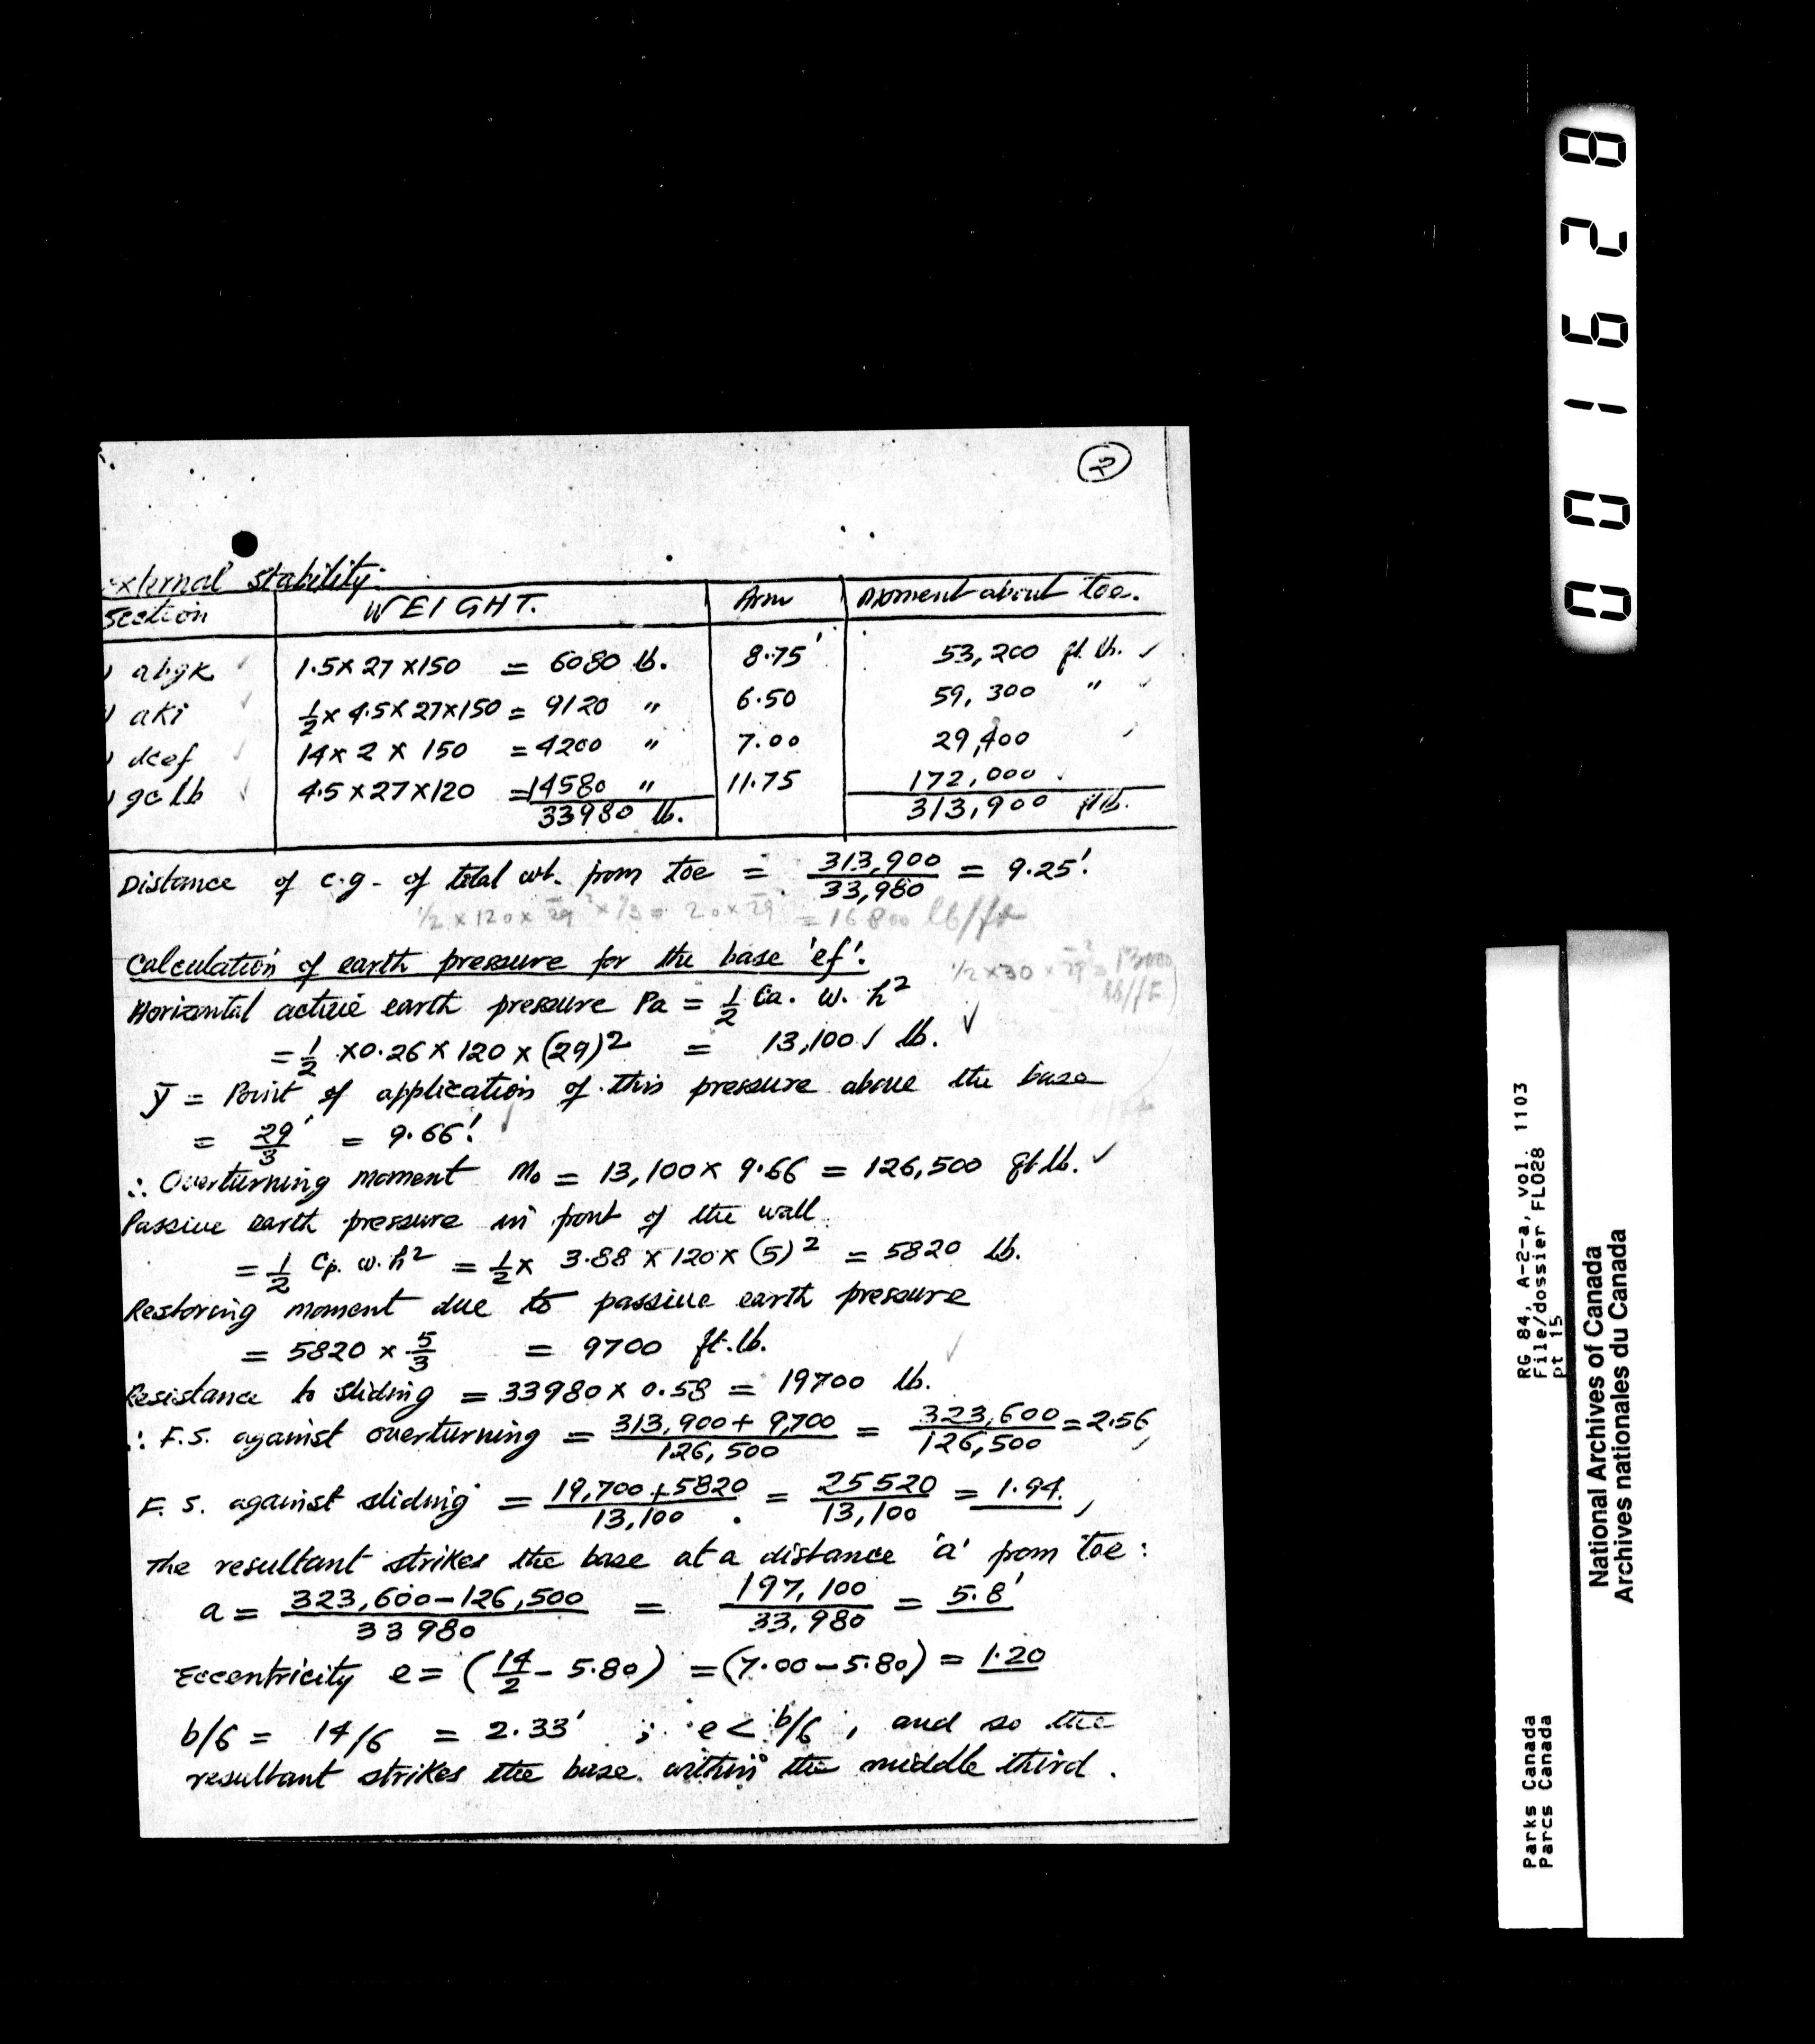 2
External Stability:
Section WEIGHT. Arm Moment about toe.
) abgk 1.5 x 27 x 150 = 6080 lb. 8.75' 53,200 ft. lb. ✓
) aki ½ x 4.5 x 27 x 150 = 9120 " 6.50 59,300 " ✓
) dcef 14 x 2 x 150 = 4200 " 7.00 29,400
) gclb 4.5 x 27 x 120 = 14580 " 11.75 172,000
33980 lb. 313,900 ft lb.
Distance of c.g. of total wt. from toe = 313,900/33,980 = 9.25'.
½ x 120 x 29² x ⅓ = 20 x 29² = 16800 lb/ft
Calculation of earth pressure for the base 'ef'.
½ x 30 x 29² = 13000 lb/ft
Horizontal active earth pressure Pa = ½ Ca. w. h²
= ½ x 0.26 x 120 x (29)² = 13,100 lb. ✓
ȳ = Point of application of this pressure above the base
= 29'/3 = 9.66'.
∴ Overturning moment Mo = 13,100 x 9.66 = 126,500 ft lb. ✓
Passive earth pressure in front of the wall.
= ½ Cp. w. h² = ½ x 3.88 x 120 x (5)² = 5820 lb.
Restoring moment due to passive earth pressure
= 5820 x 5/3 = 9700 ft. lb.
Resistance to sliding = 33980 x 0.58 = 19700 lb.
∴ F.S. against overturning = 313,900 + 9,700/126,500 = 323,600/126,500 = 2.56
F.S. against sliding = 19,700 + 5820/13,100 = 25520/13,100 = 1.94
The resultant strikes the base at a distance 'a' from toe:
a = 323,600 - 126,500/33980 = 197,100/33,980 = 5.8'
Eccentricity e = (14/2 - 5.80) = (7.00 - 5.80) = 1.20
b/6 = 14/6 = 2.33' ; e < b/6, and so the
resultant strikes the base within the middle third.
001628
RG 84, A-2-a, vol. 1103
File/dossier FLO28
pt 15
Parks Canada
Parcs Canada
National Archives of Canada
Archives nationales du Canada